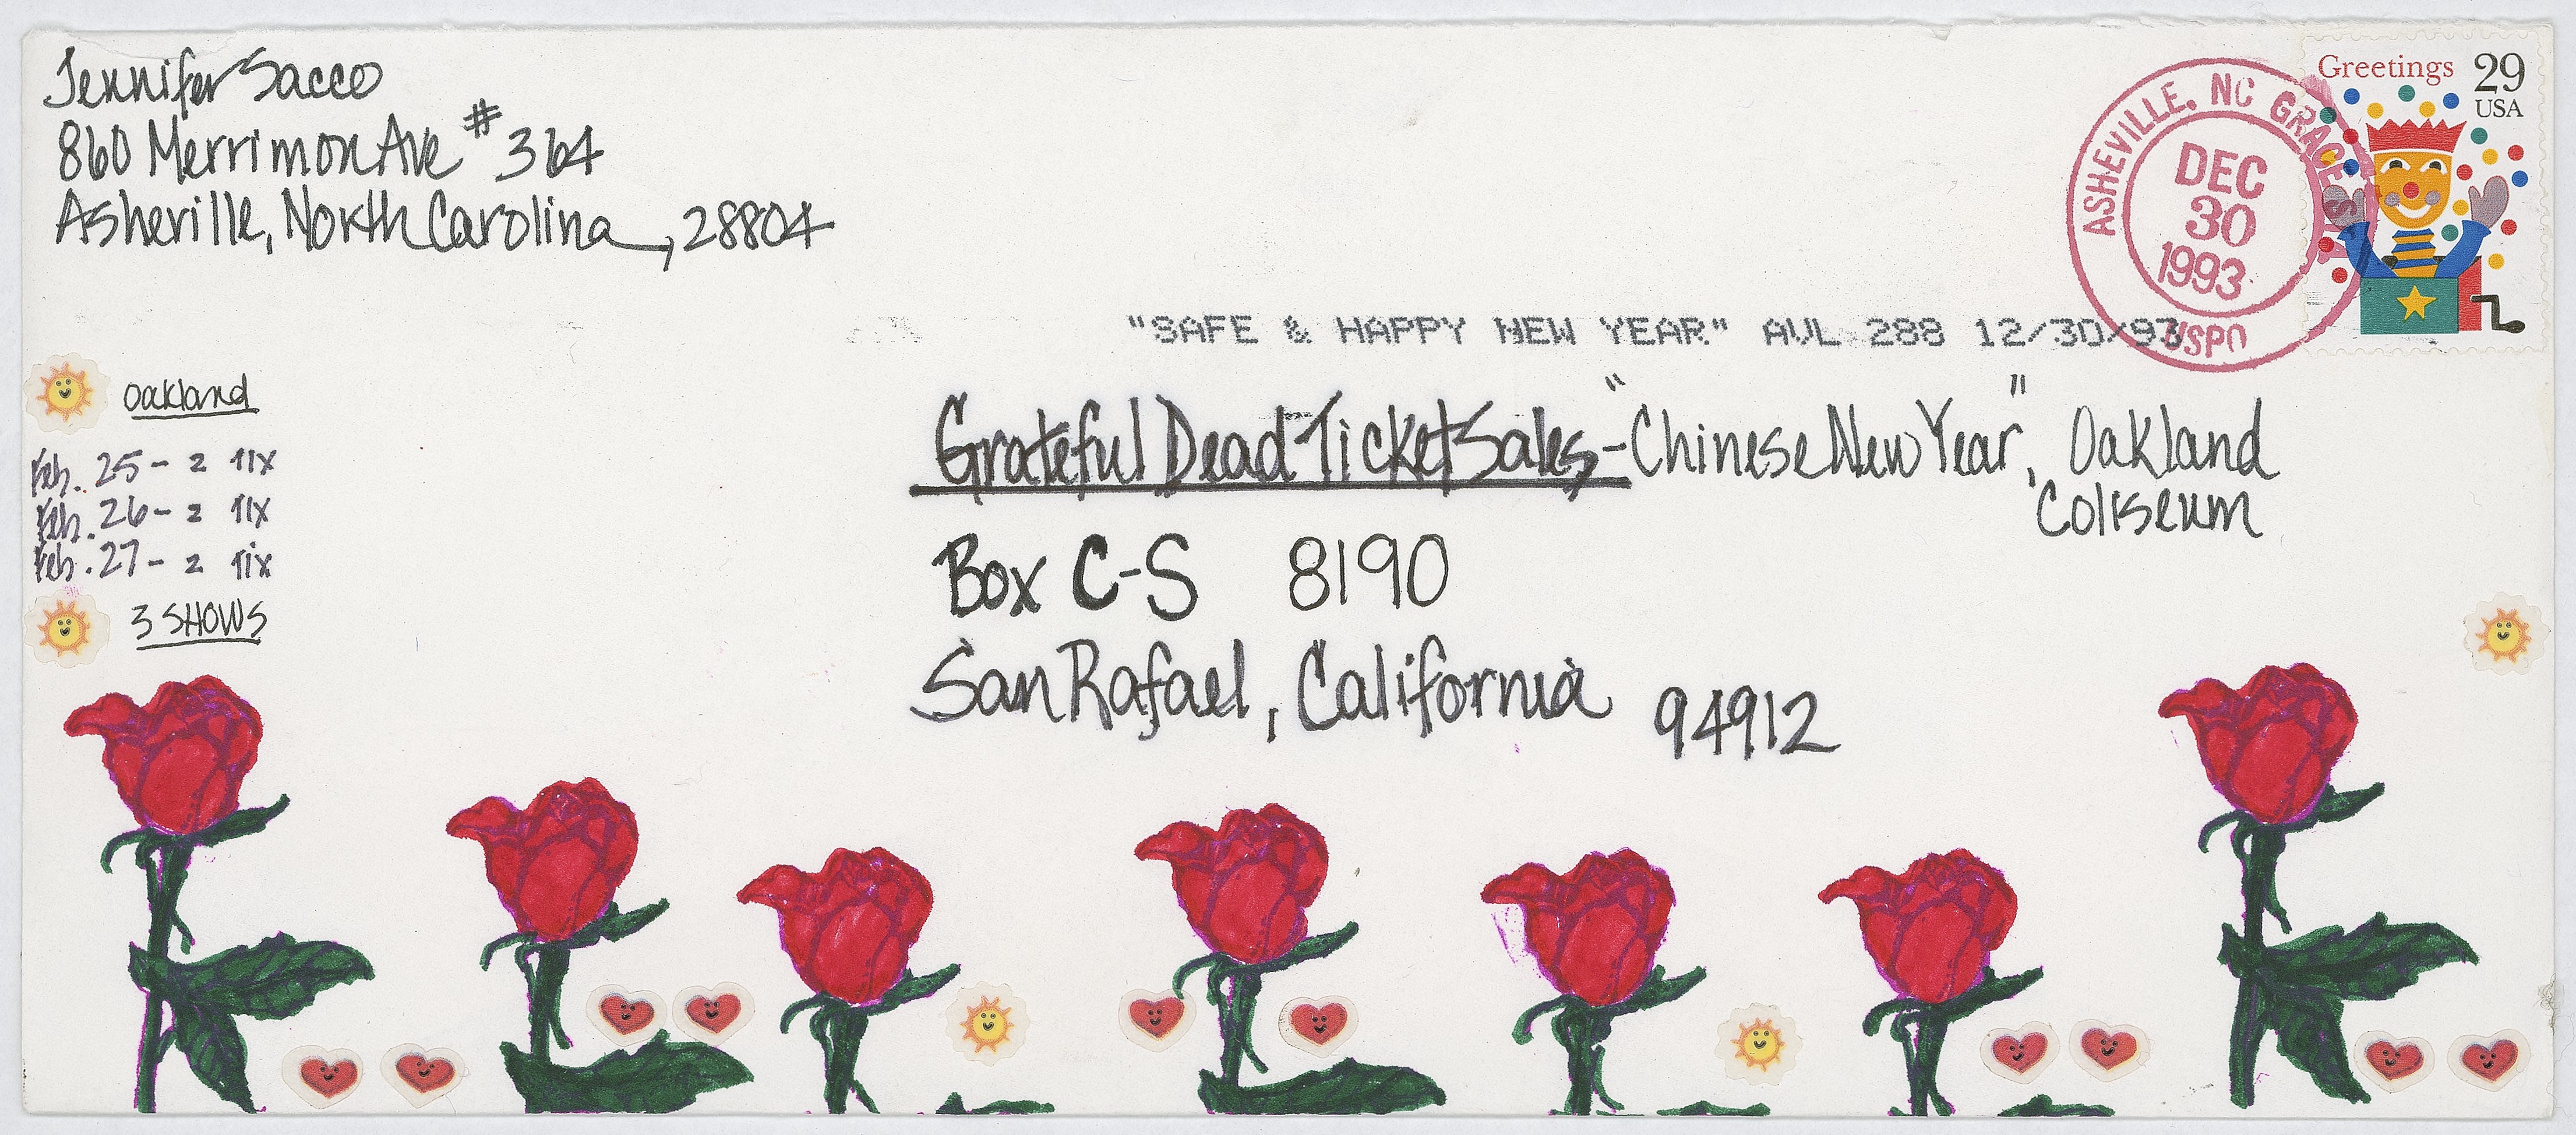 Jennifer Sacco
860 Merrimon Ave #364
Asheville, North Carolina, 28804
Greetings 29
USA
ASHEVILLE, NC GRACE STA
DEC
30
1993
USPO
"SAFE & HAPPY NEW YEAR" AVL 288 12/30/93
Oakland
Feb. 25 - 2 TIX
Feb. 26 - 2 TIX
Feb. 27 - 2 TIX
3 SHOWS
Grateful Dead Ticket Sales - "Chinese New Year", Oakland
Coliseum
Box C-S 8190
San Rafael, California 94912